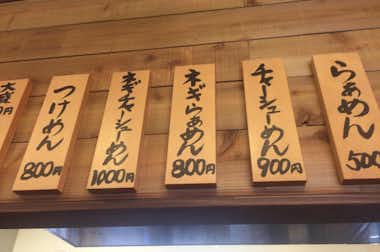 らぁめん
500
チャーシューめん
900円
ネギらぁめん
800円
ネギチャーシューめん
1000円
つけめん
800円
大盛
円